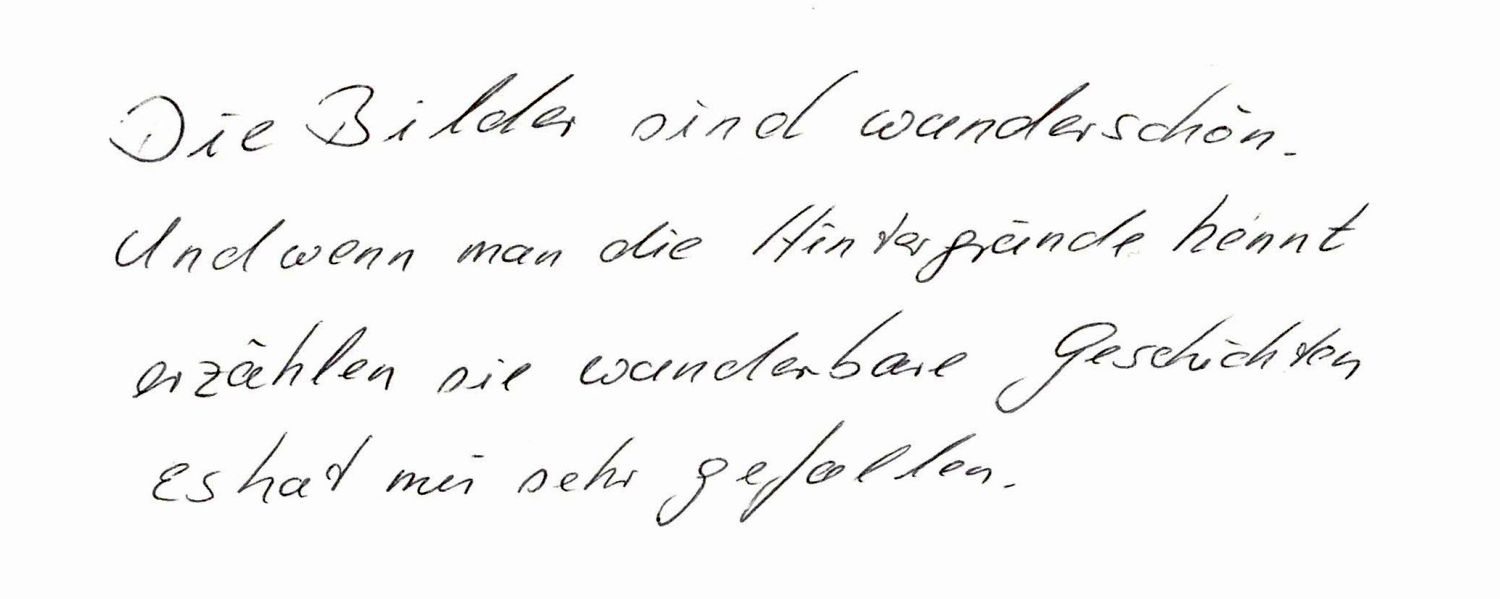 Die Bilder sind wunderschön.
Und wenn man die Hintergründe kennt
erzählen sie wunderbare Geschichten
es hat mir sehr gefallen.